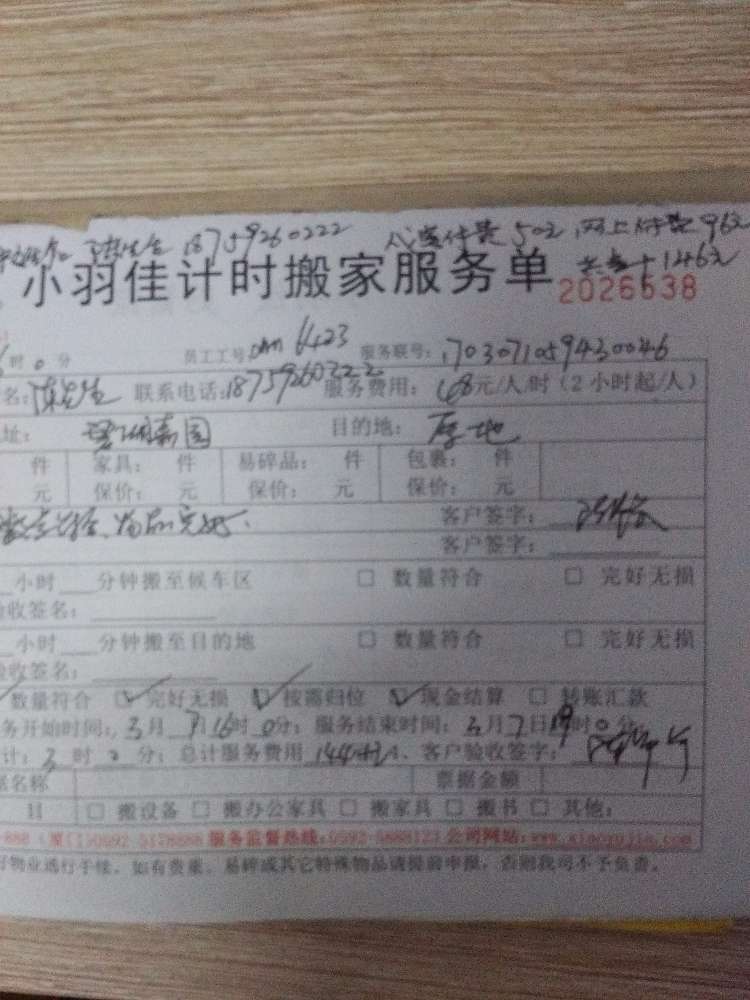 陈先生 18759260222 代宝付费50元 网上付费96元
小羽佳计时搬家服务单 共计146元
2026638
时0分 员工工号: 6423 服务联号: 1703071059430046
名: 陈先生 联系电话: 18759260222 服务费用: 48元/人/时(2小时起/人)
址: 嘉园 目的地: 原地
件 家具: 件 易碎品: 件 包裹: 件
元 保价: 元 保价: 元 保价: 元
物品完好. 客户签字:
客户签字:
小时 分钟搬至候车区 □ 数量符合 □ 完好无损
收签名:
小时 分钟搬至目的地 □ 数量符合 □ 完好无损
收签名:
数量符合 完好无损 按需归位 现金结算 □ 转账汇款
务开始时间: 3月7日16时0分; 服务结束时间: 3月7日19时0分
计: 3时0分; 总计服务费用 144 客户验收签字:
据名称 票据金额
目 □ 搬设备 □ 搬办公家具 □ 搬家具 □ 搬书 □ 其他:
888(厦门)0592-5178888 服务监督热线:0592-5888123 公司网站:www.xiaoyujia.com
好物业通行手续, 如有贵重、易碎或其它特殊物品请提前申报, 否则我司不予负责。